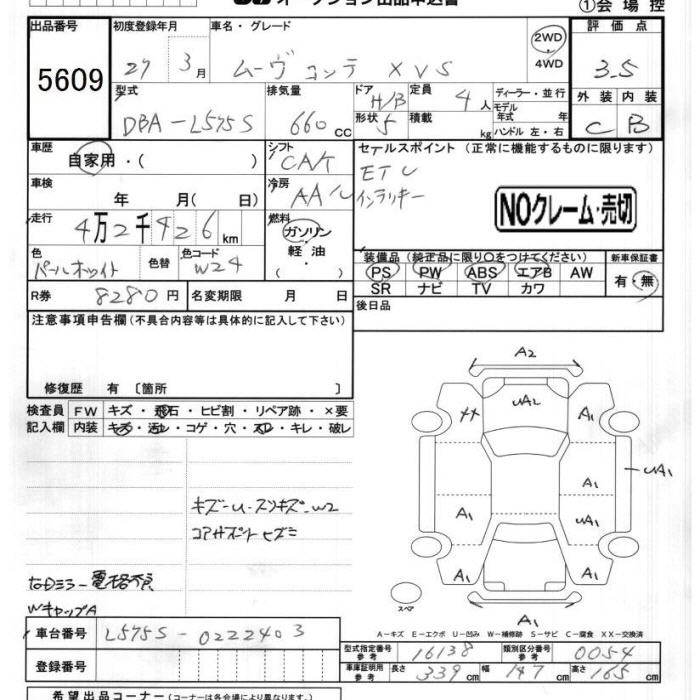 オークション出品申込書
①会場控
出品番号
5609
初度登録年月
27 3月
車名・グレード
ムーヴ コンテ XVS
2WD
4WD
評価点
3.5
外装 内装
C B
型式
DBA-L575S
排気量
660 CC
ドア H/B
形状 5
定員 4人
積載 kg
ディーラー・並行
モデル年式 年
ハンドル 左・右
車歴
自家用・( )
シフト
CA/T
冷房
AA/C
セールスポイント (正常に機能するものに限ります)
ETC
インテリキー
NOクレーム・売切
車検
年 月( 日)
走行
4万2千926km
燃料
ガソリン
軽油
・
色
パールホワイト
色替
色コード
W24
装備品 (純正品に限り○をつけてください)
PS PW ABS エアB AW
SR ナビ TV カワ
新車保証書
有・無
R券
8280円
名変期限 月 日
後日品
注意事項申告欄(不具合内容等は具体的に記入して下さい)
修復歴 有 〔箇所 〕
検査員記入欄
FW キズ・飛石・ヒビ割・リペア跡・×要
内装 キズ・汚レ・コゲ・穴・スレ・キレ・破レ
キズ-U・スリキズ-W2
コアサポートヒズミ
右Dミラー電格不良
WキャップA
A2
UA2
XX
A1
UA1
A1
A1
UA1
A1
A1
A1
スペア
A-キズ E-エクボ U-凹み W-補修跡 S-サビ C-腐食 XX-交換済
車台番号
L575S-0222403
登録番号
型式指定番号 参考
16138
類別区分番号 参考
0054
車庫証明用 参考
長さ 339cm
幅 147cm
高さ 165cm
希望出品コーナー(コーナーは各会場により異なります。)